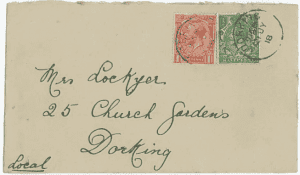 Mrs Lockyer
25 Church Gardens
Dorking
Local